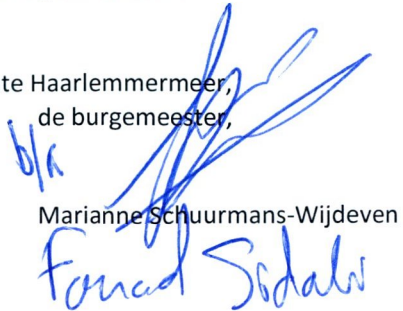 te Haarlemmermeer,
de burgemeester,
b/a
Marianne Schuurmans-Wijdeven
Fouad Sidali